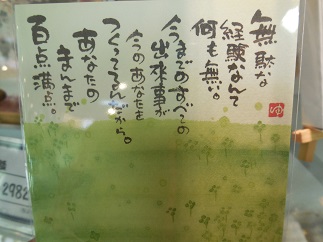 無駄な
経験なんて
何も無い。
今までのすべての
出来事が
今のあなたを
つくってるんだから。
あなたの
まんまで
百点満点。
2982